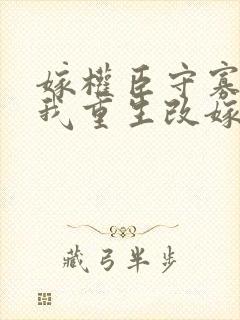 嫁權臣守寡
我重生改嫁
藏弓半步